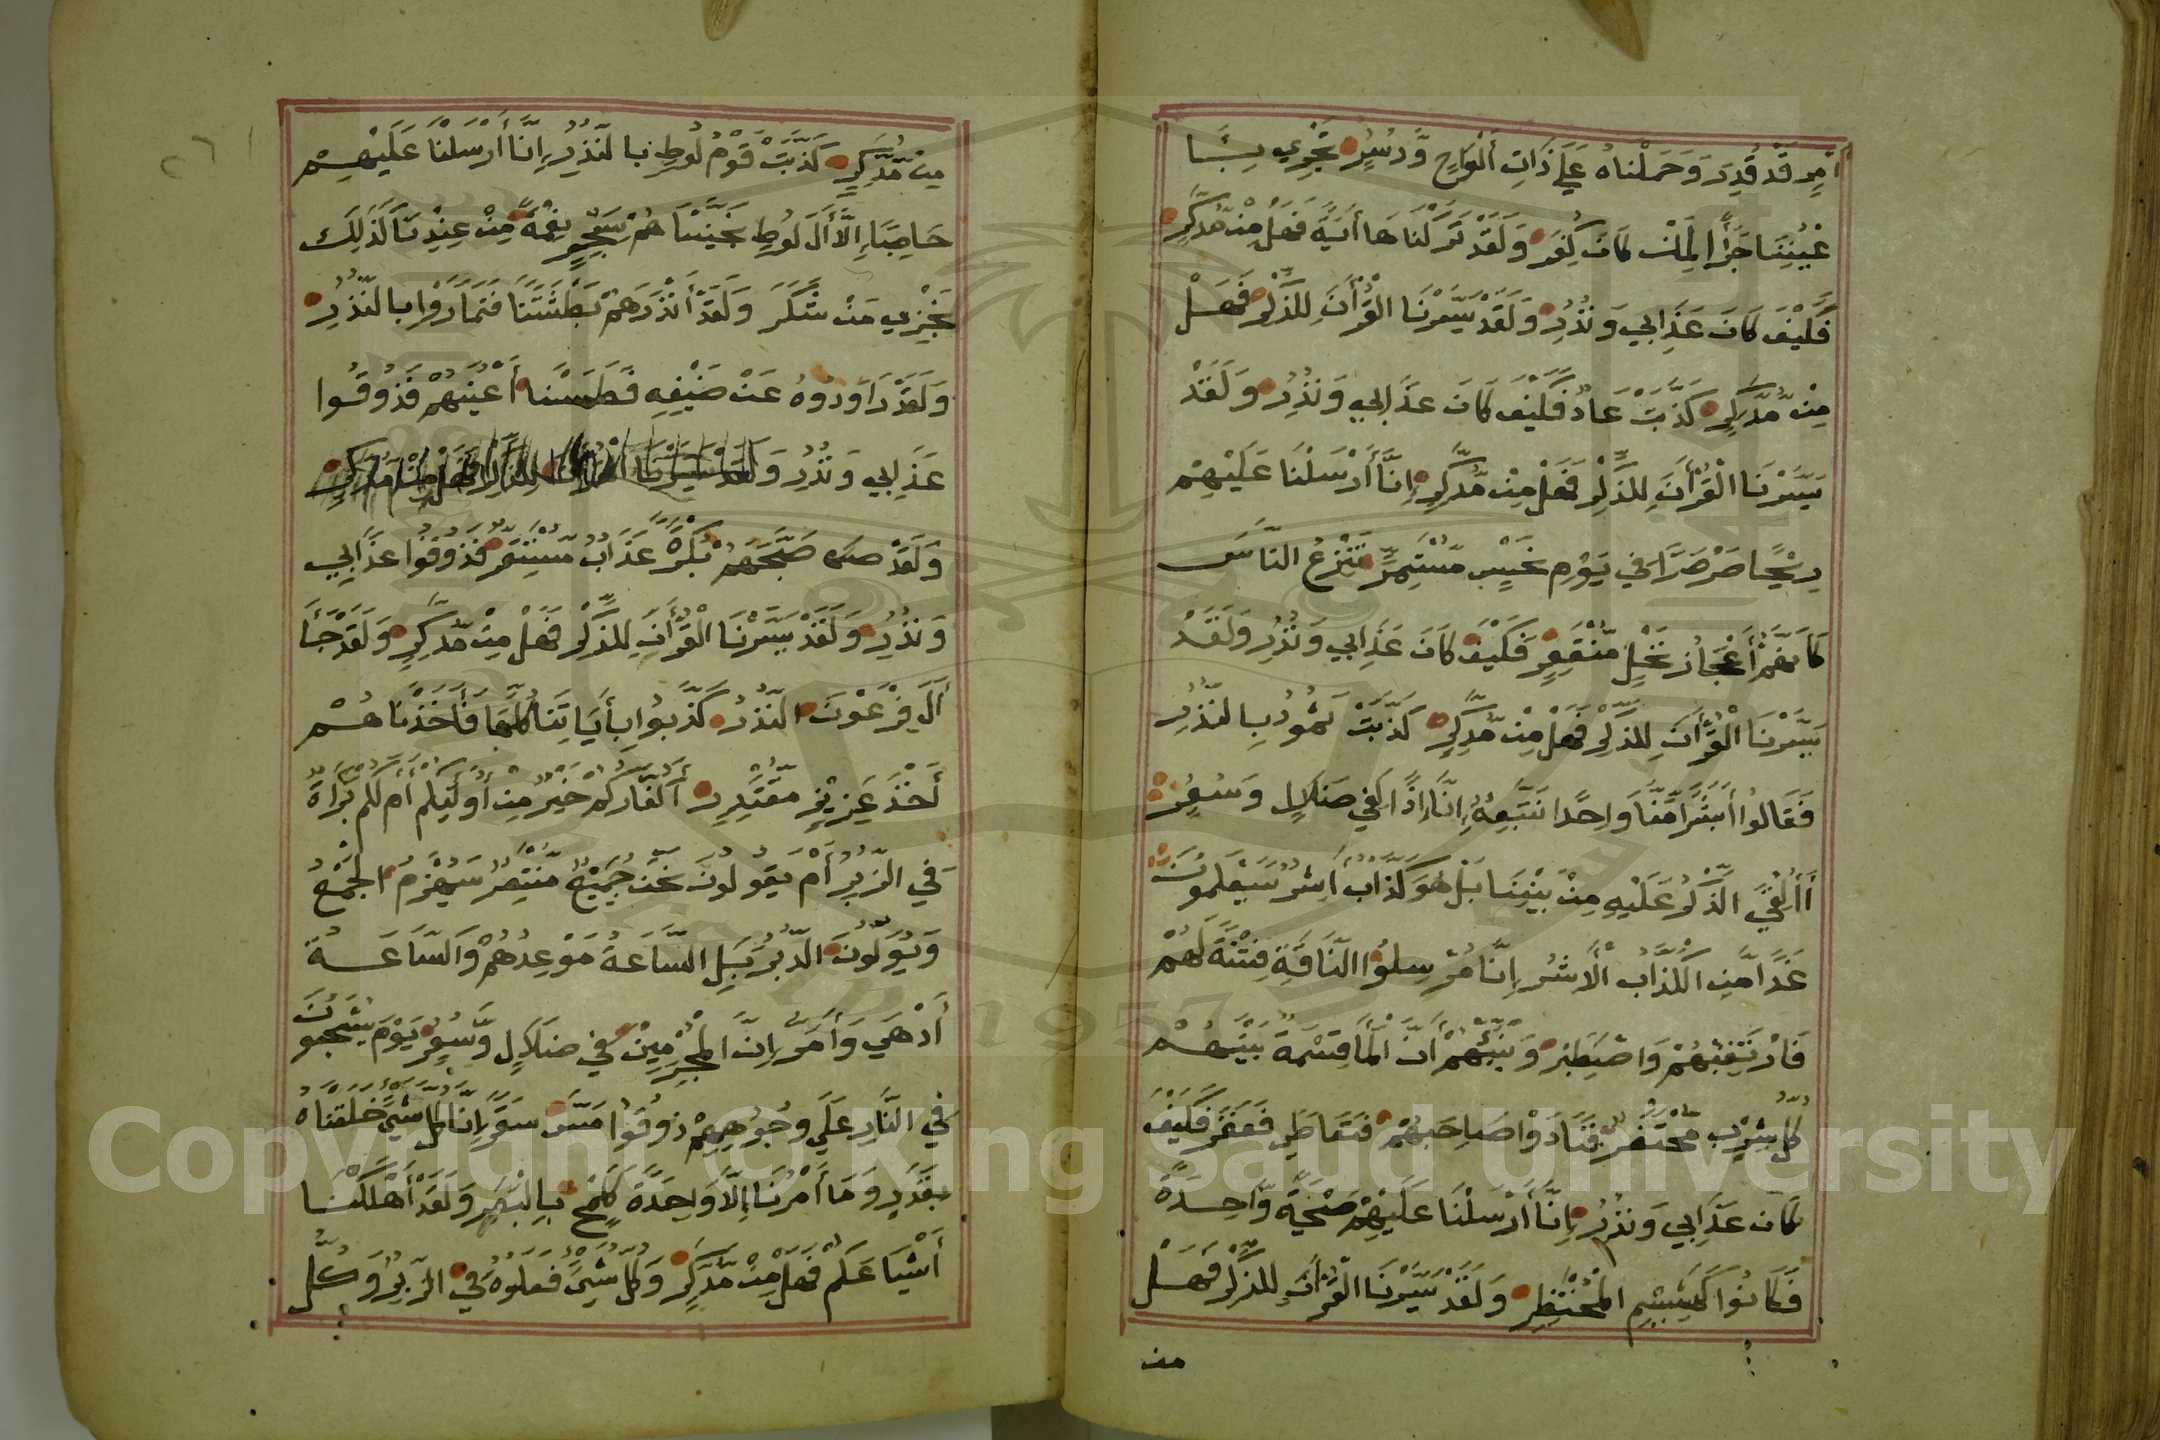 أَمْرٍ قَدْ قُدِرَ وَحَمَلْنَاهُ عَلَى ذَاتِ أَلْوَاحٍ وَّدُسُرٍ تَجْرِي بِـ
عْيُنِنَا جَزَاً لِمَنْ كَانَ كُفِرَ وَلَقَدْ تَرَكْنَاهَا أَيَةً فَهَلْ مِنْ مُّدَّكِرٍ
فَكَيْفَ كَانَ عَذَابِي وَنُذُرِ وَلَقَدْ يَسَّرْنَا الْقُرْأَنَ لِلذِّكْرِ فَهَلْ
مِنْ مُّدَّكِرٍ كَذَّبَتْ عَادٌ فَكَيْفَ كَانَ عَذَابِي وَنُذُرِ وَلَقَدْ
يَسَّرْنَا الْقُرْأَنَ لِلذِّكْرِ فَهَلْ مِنْ مُّدَّكِرٍ إِنَّا أَرْسَلْنَا عَلَيْهِمْ
رِيْحًا صَرْصَرًا فِي يَوْمِ نَحْسٍ مُّسْتَمِرٍّ تَنْزِعُ النَّاسَ
كَأَنَّهُمْ أَعْجَازُ نَخْلٍ مُّنْقَعِرٍ فَكَيْفَ كَانَ عَذَابِي وَنُذُرِ وَلَقَدْ
يَسَّرْنَا الْقُرْأَنَ لِلذِّكْرِ فَهَلْ مِنْ مُّدَّكِرٍ كَذَّبَتْ ثَمُودُ بِالنُّذُرِ
فَقَالُوا أَبَشَرًا مِّنَّا وَاحِدًا نَتَّبِعُهُ إِنَّا إِذًا لَفِي ضَلَالٍ وَسُعُرٍ
أَأُلْقِيَ الذِّكْرُ عَلَيْهِ مِنْ بَيْنِنَا بَلْ هُوَ كَذَّابٌ أَشِرٌ سَيَعْلَمُونَ
غَدًا مَّنِ الْكَذَّابُ الْأَشِرُ إِنَّا مُرْسِلُوا النَّاقَةِ فِتْنَةً لَهُمْ
فَارْتَقِبْهُمْ وَاصْطَبِرْ وَنَبِّئْهُمْ أَنَّ الْمَا قِسْمَةٌ بَيْنَهُمْ
كُلُّ شِرْبٍ مُحْتَضَرٌ فَنَادَوْا صَاحِبَهُمْ فَتَعَاطَى فَعَقَرَ فَكَيْفَ
كَانَ عَذَابِي وَنُذُرِ إِنَّا أَرْسَلْنَا عَلَيْهِمْ صَيْحَةً وَّاحِدَةً
فَكَانُوا كَهَشِيْمِ الْمُحْتَظِرِ وَلَقَدْ يَسَّرْنَا الْقُرْأَنَ لِلذِّكْرِ فَهَلْ
من
مِنْ مُّدَّكِرٍ كَذَّبَتْ قَوْمُ لُوطٍ بِالنُّذُرِ إِنَّا أَرْسَلْنَا عَلَيْهِمْ
حَاصِبًا إِلَّا أَلَ لُوطٍ نَجَّيْنَاهُمْ بِسَحَرٍ نِعْمَةً مِنْ عِنْدِنَا كَذَلِكَ
نَجْزِي مَنْ شَكَرَ وَلَقَدْ أَنْذَرَهُمْ بَطْشَتَنَا فَتَمَارَوْا بِالنُّذُرِ
وَلَقَدْ رَاوَدُوهُ عَنْ ضَيْفِهِ فَطَمَسْنَا أَعْيُنَهُمْ فَذُوقُوا
عَذَابِي وَنُذُرِ وَلَقَدْ يَسَّرْنَا الْقُرْأَنَ لِلذِّكْرِ فَهَلْ مِنْ مُدَّكِرٍ
وَلَقَدْ صَبَّحَهُمْ بُكْرَةً عَذَابٌ مُّسْتَقِرٌّ فَذُوقُوا عَذَابِي
وَنُذُرِ وَلَقَدْ يَسَّرْنَا الْقُرْأَنَ لِلذِّكْرِ فَهَلْ مِنْ مُّدَّكِرٍ وَلَقَدْ جَأَ
أَلَ فِرْعَوْنَ النُّذُرُ كَذَّبُوا بِأَيَاتِنَا كُلِّهَا فَأَخَذْنَاهُمْ
أَخْذَ عَزِيزٍ مُّقْتَدِرٍ أَكُفَّارُكُمْ خَيْرٌ مِنْ أُولَئِكُمْ أَمْ لَكُمْ بَرَاةٌ
فِي الزُّبُرِ أَمْ يَقُولُونَ نَحْنُ جَمِيْعٌ مُّنْتَصِرٌ سَيُهْزَمُ الْجَمْعُ
وَيُوَلُّونَ الدُّبُرَ بَلِ السَّاعَةُ مَوْعِدُهُمْ وَالسَّاعَةُ
أَدْهَى وَأَمَرُّ إِنَّ الْمُجْرِمِيْنَ فِي ضَلَالٍ وَّسُعُرٍ يَوْمَ يُسْحَبُونَ
فِي النَّارِ عَلَى وُجُوهِهِمْ ذُوقُوا مَسَّ سَقَرَ إِنَّا كُلَّ شَيْءٍ خَلَقْنَاهُ
بِقَدَرٍ وَمَا أَمْرُنَا إِلَّا وَاحِدَةٌ كَلَمْحٍ بِالْبَصَرِ وَلَقَدْ أَهْلَكْنَا
أَشْيَاعَكُمْ فَهَلْ مِنْ مُّدَّكِرٍ وَكُلُّ شَيْءٍ فَعَلُوهُ فِي الزُّبُرِ وَكُلُّ
Copyright © King Saud University
1957